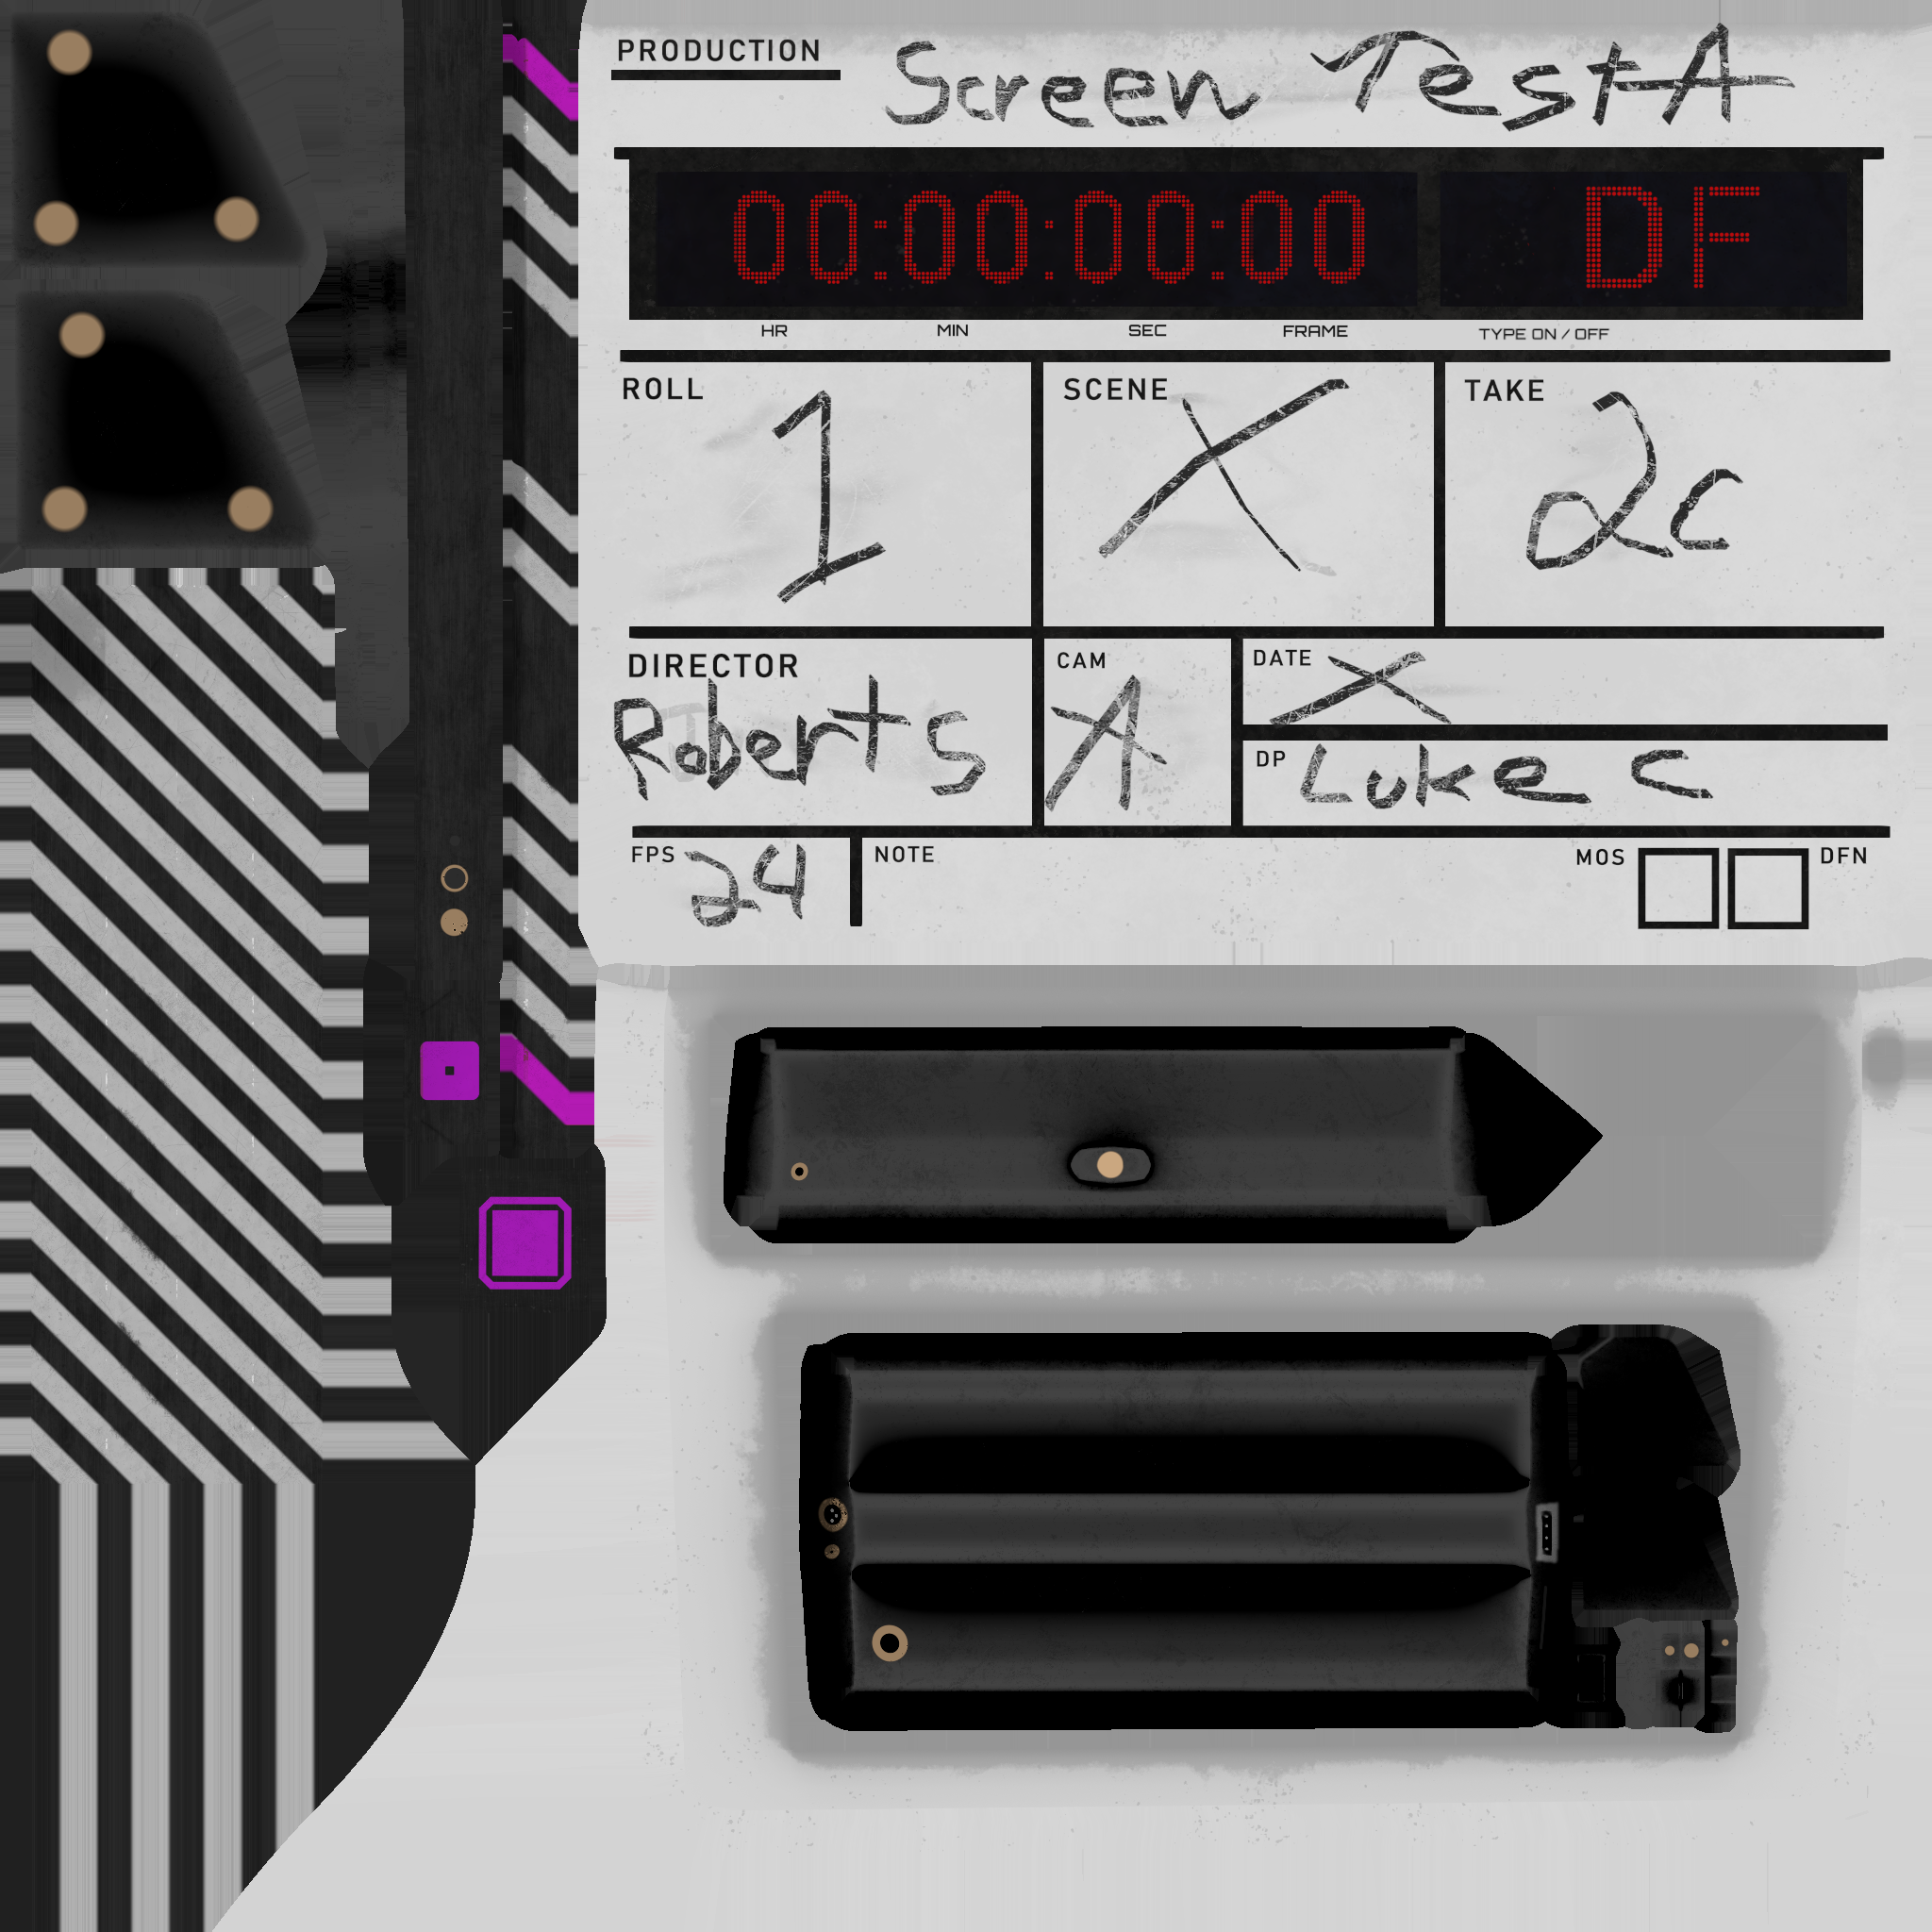 PRODUCTION Screen TestA
00:00:00:00 DF
HR MIN SEC FRAME TYPE ON / OFF
ROLL 1 SCENE X TAKE 2c
DIRECTOR Roberts CAM A DATE X
DP Luke C
FPS 24 NOTE MOS DFN